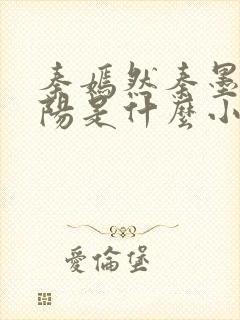 秦嫣然秦墨
陽是什麼小
愛倫堡